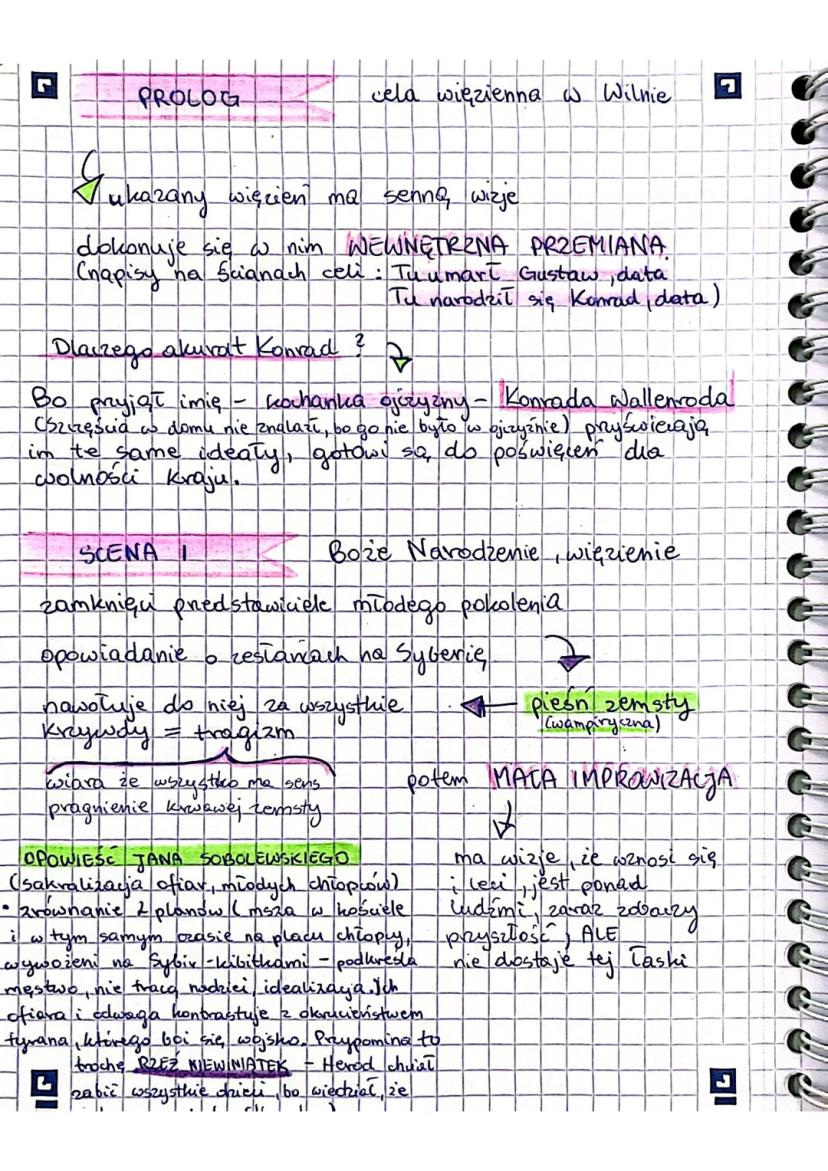 PROLOG cela więzienna w Wilnie
ukazany więzień ma senną wizje
dokonuje się w nim WEWNĘTRZNA PRZEMIANA.
(napisy na ścianach celi: Tu umarł Gustaw, data
Tu narodził się Konrad, data)
Dlaczego akurat Konrad?
Bo przyjął imię - kochanka ojczyzny - Konrada Wallenroda
(Szczęścia w domu nie znalazł, bo go nie było w ojczyźnie) przyświecają
im te same ideały, gotowi są do poświęceń dla
wolności kraju.
SCENA I Boże Narodzenie, więzienie
zamknięci przedstawiciele młodego pokolenia
opowiadanie o zesłaniach na Syberię
nawołuje do niej za wszystkie pieśń zemsty
krzywdy = tragizm (wampiryczna)
wiara że wszystko ma sens
pragnienie krwawej zemsty
potem MAŁA IMPROWIZACJA
OPOWIEŚĆ JANA SOBOLEWSKIEGO
(sakralizacja ofiar, młodych chłopców)
• zrównanie 2 planów (msza w kościele
i w tym samym czasie na placu chłopcy,
wywożeni na Sybir - kibitkami - podkreśla
męstwo, nie tracą nadziei, idealizacja. Ich
ofiara i odwaga kontrastuje z okrucieństwem
tyrana, którego boi się wojsko. Przypomina to
trochę RZEŹ NIEWINIĄTEK - Herod chciał
zabić wszystkie dzieci, bo wiedział, że
ma wizje, że wznosi się
i leci, jest ponad
ludźmi, zaraz zobaczy
przyszłość, ALE
nie dostaje tej łaski